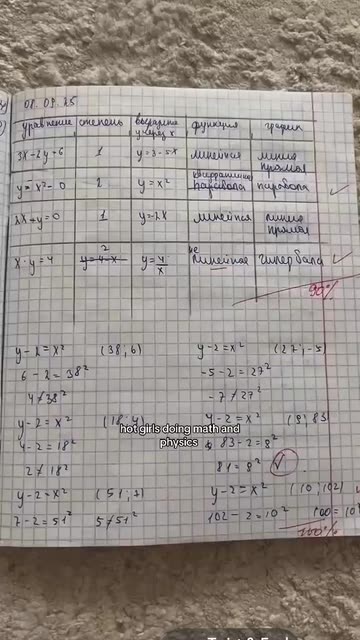 08.09.25
уравнение степень выразить у через x функция график
3x-2y=6 1 y=3-5x линейная линия прямая
y=x²-0 2 y=x² квадратичная парабола парабола
2x+y=0 1 y=-2x линейная линия прямая
x·y=4 2 y=4/x не линейная гипербола
90%
y-2=x² (38,6) y-2=x² (27,-5)
6-2=38² -5-2=27²
4≠38² -7≠27²
y-2=x² (18,4) y-2=x² (9,83)
4-2=18² 83-2=9²
hot girls doing math and
physics
2≠18² 81=9²
y-2=x² (51,7) y-2=x² (10,102)
7-2=51² 5≠51² 102-2=10² 100=10²
100%